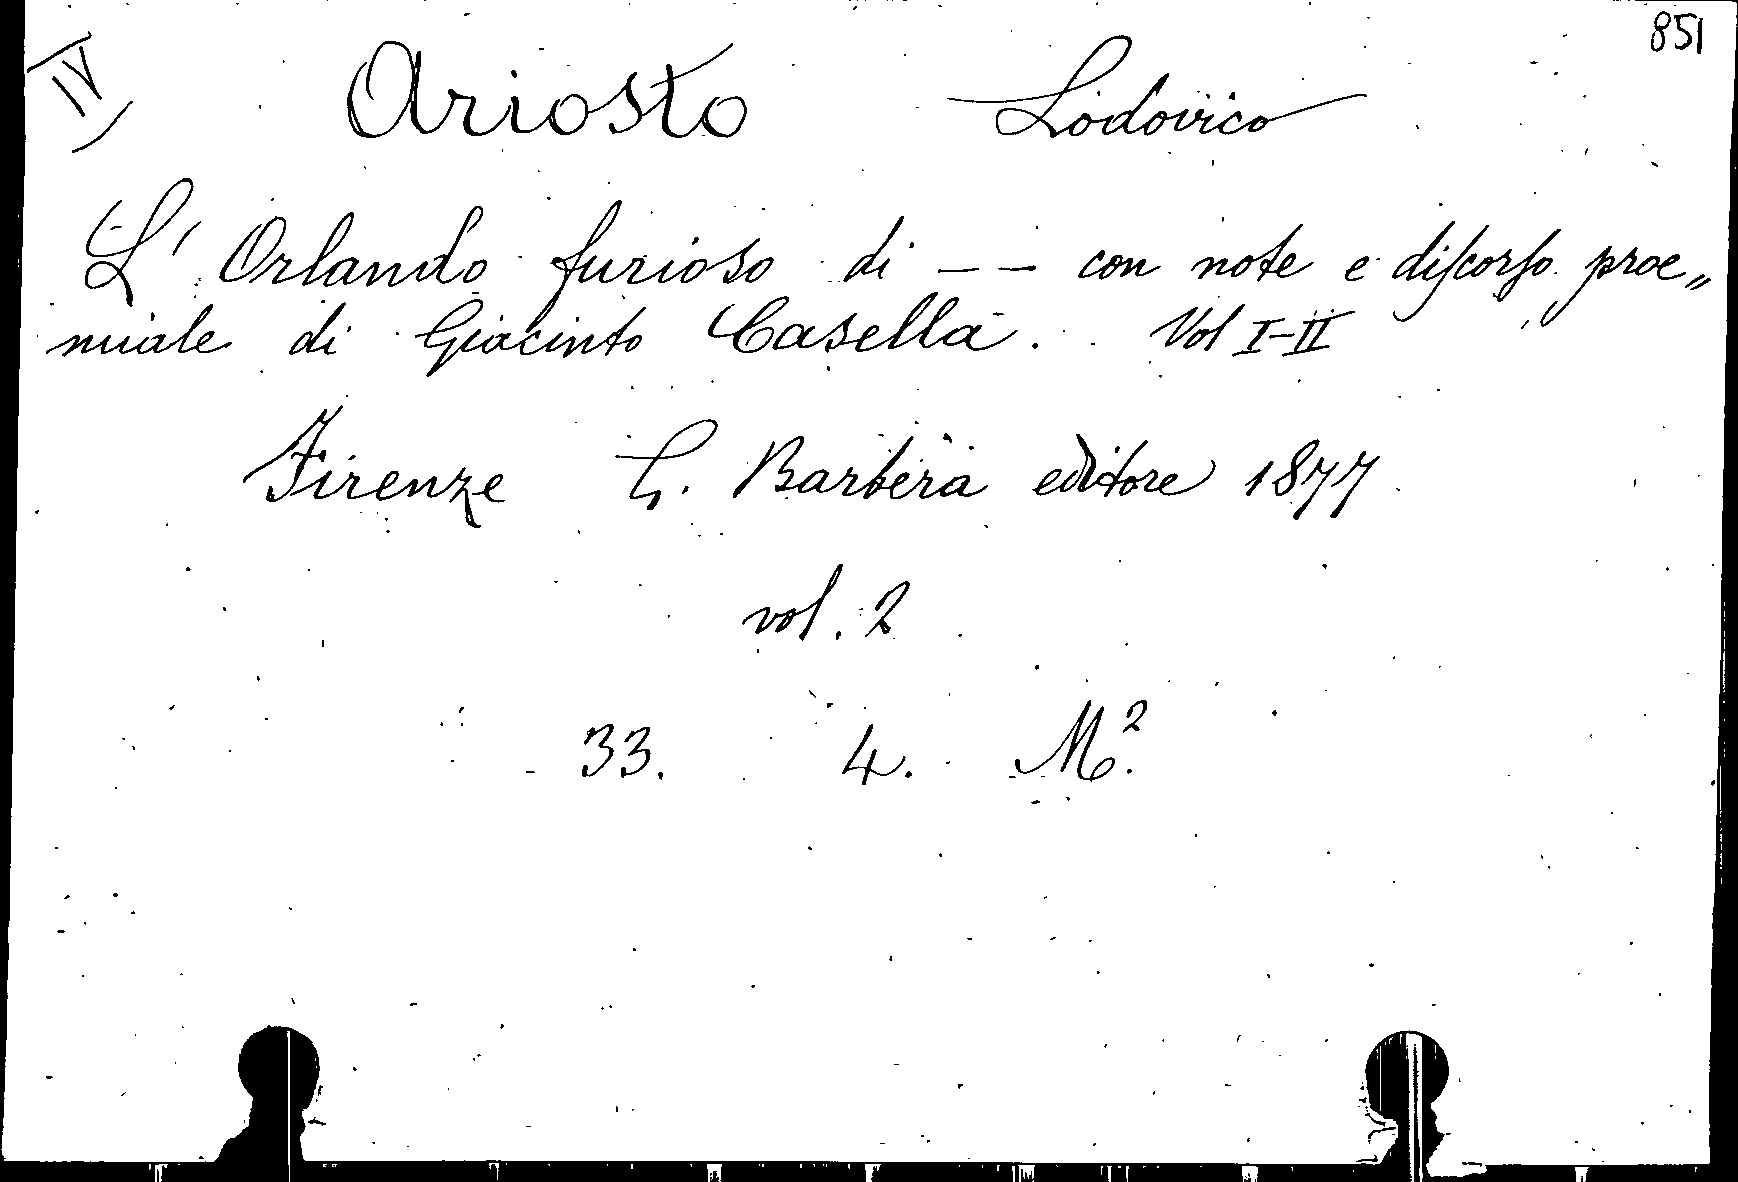 851
IV
Ariosto Lodovico
L' Orlando furioso di — — con note e discorso proe„
miale di Giacinto Casella. Vol I-II
Firenze G. Barbèra editore 1877
vol. 2
33. 4. M.²